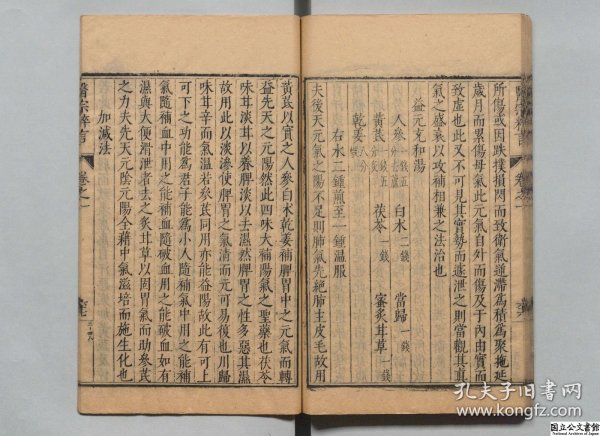 所傷或因跌撲損閃而致衛氣逆滯爲積爲聚拖延
歲月而累傷母氣此元氣自外而傷及于內由實而
致虛也此又不可見其實勢而遽泄之則當觀其真
氣之盛衰以攻補相兼之法治也
益元充和湯
人參 白朮二錢 當歸一錢
黃芪 茯苓一錢 蜜炙甘草一錢
乾姜
右水二鍾煎至一鍾溫服
夫後天元氣之陽不足則肺氣先絶肺主皮毛故用
黃芪以實之人參白朮乾姜補脾胃中之元氣而轉
益先天之元陽然此四味大補陽氣之聖藥也茯苓
味甘淡甘以養脾淡以去濕然脾胃之性多惡其濕
故用此以淡滲使脾胃之氣清而元可易復也川歸
味甘辛而氣溫若參芪同用亦能益陽故此有可上
可下之功能爲君子能爲小人隨補氣中用之能補
氣隨補血中用之能補血隨破血中用之能破血如有
濕與大便滑泄者去之炙甘草以固胃氣而助參芪
之力夫先天元陰元陽全藉中氣滋培而施生化也
加減法
醫宗粹言
卷之一
孔夫子旧書网
www.kongfz.com
国立公文書館
National Archives of Japan